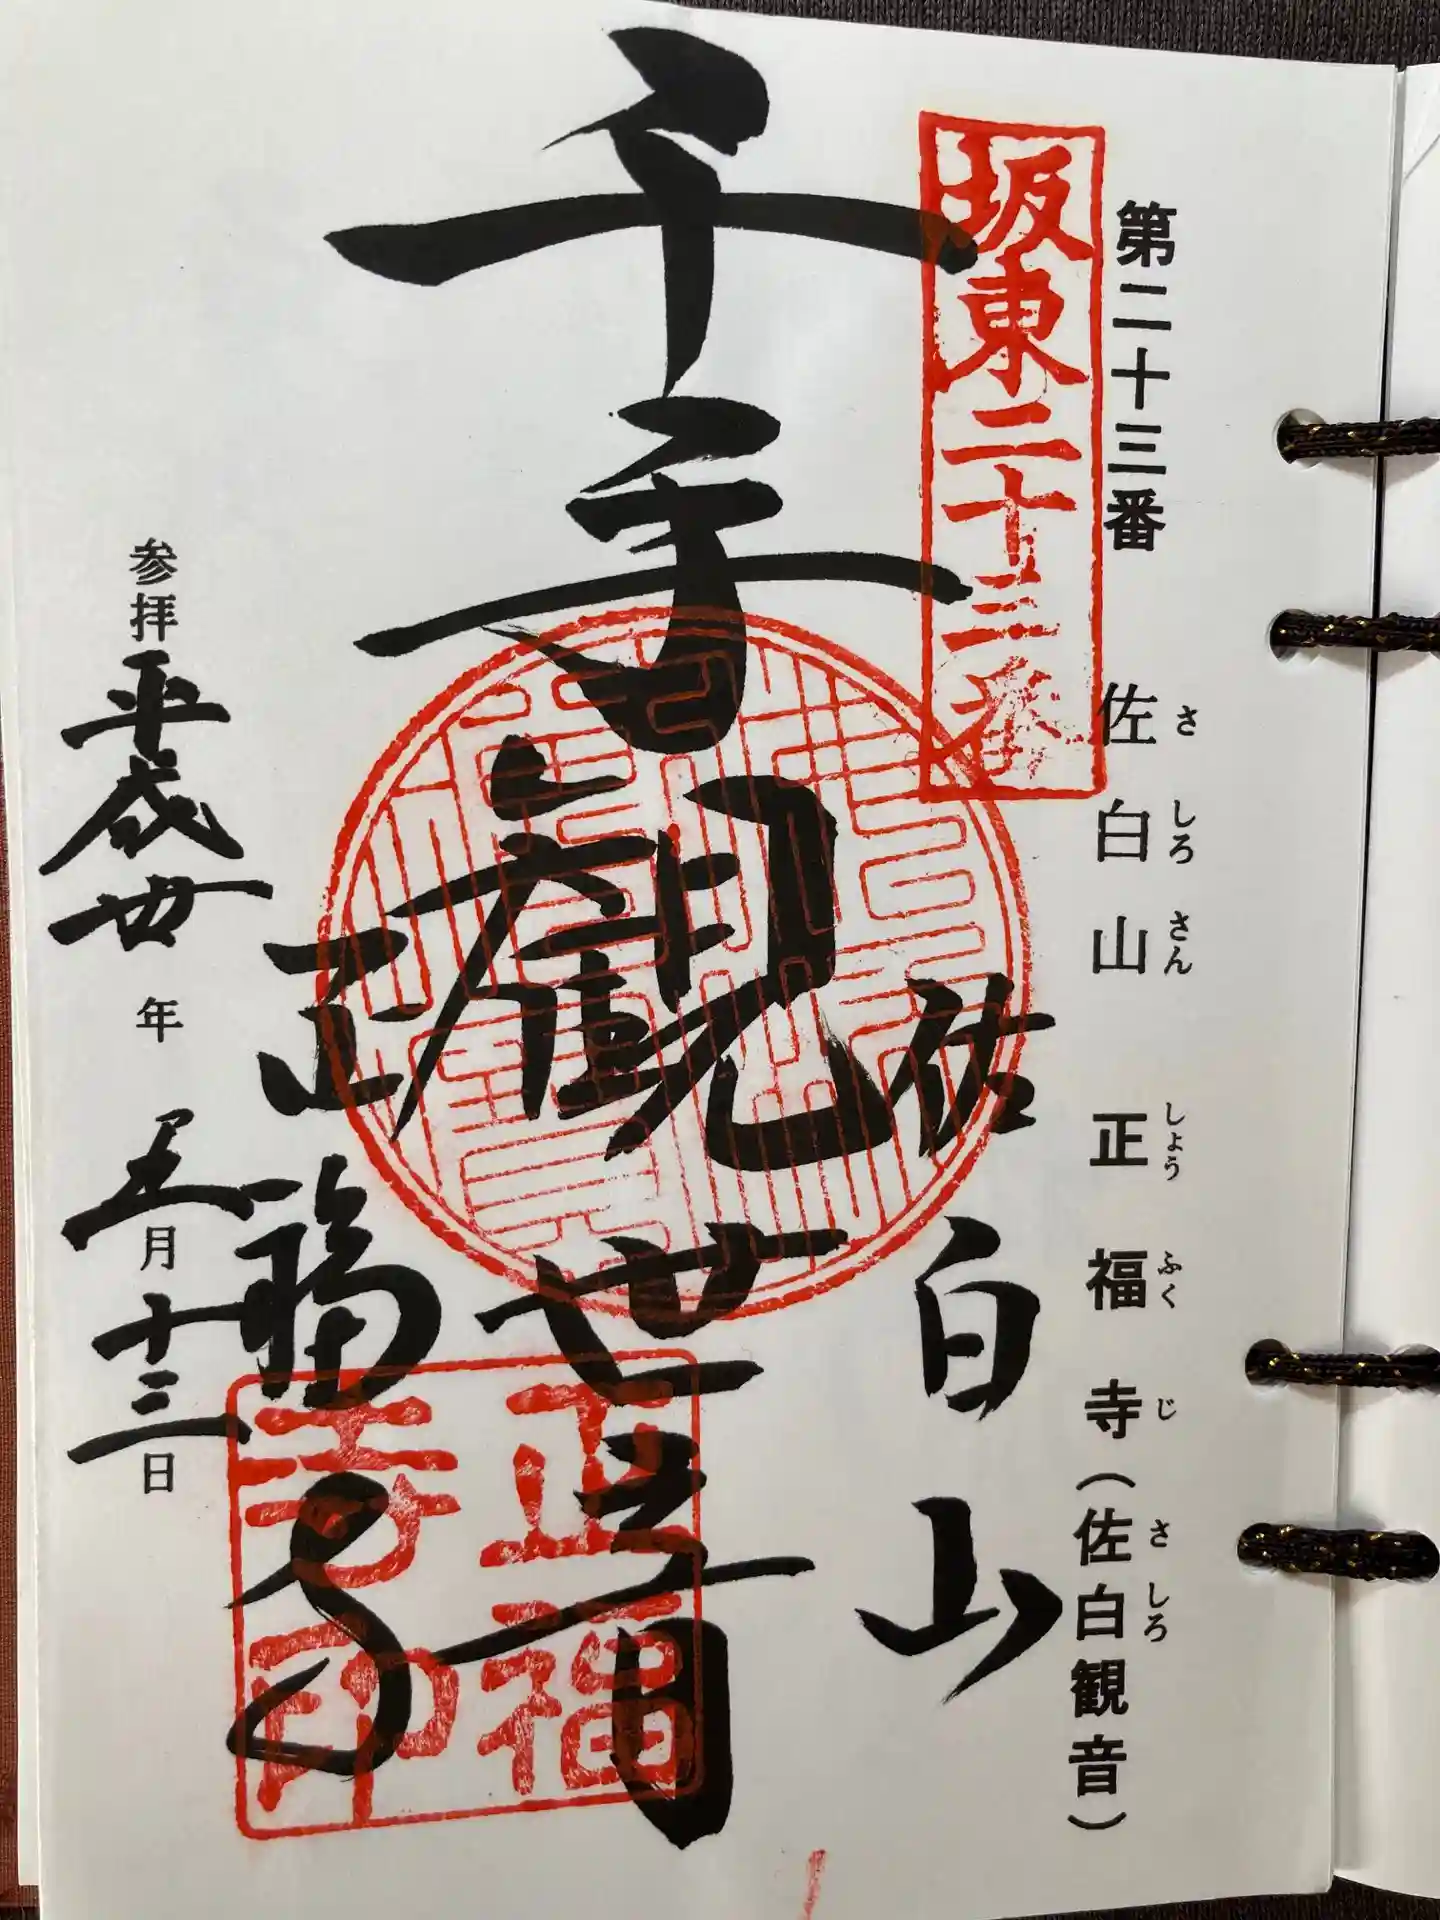 第二十三番 佐白山 正福寺(佐白観音)
さ しろ さん しょう ふく じ さ しろ
坂東二十三番
佐白山
千手観世音
正福寺
正福寺印
参拝平成丗年五月十三日